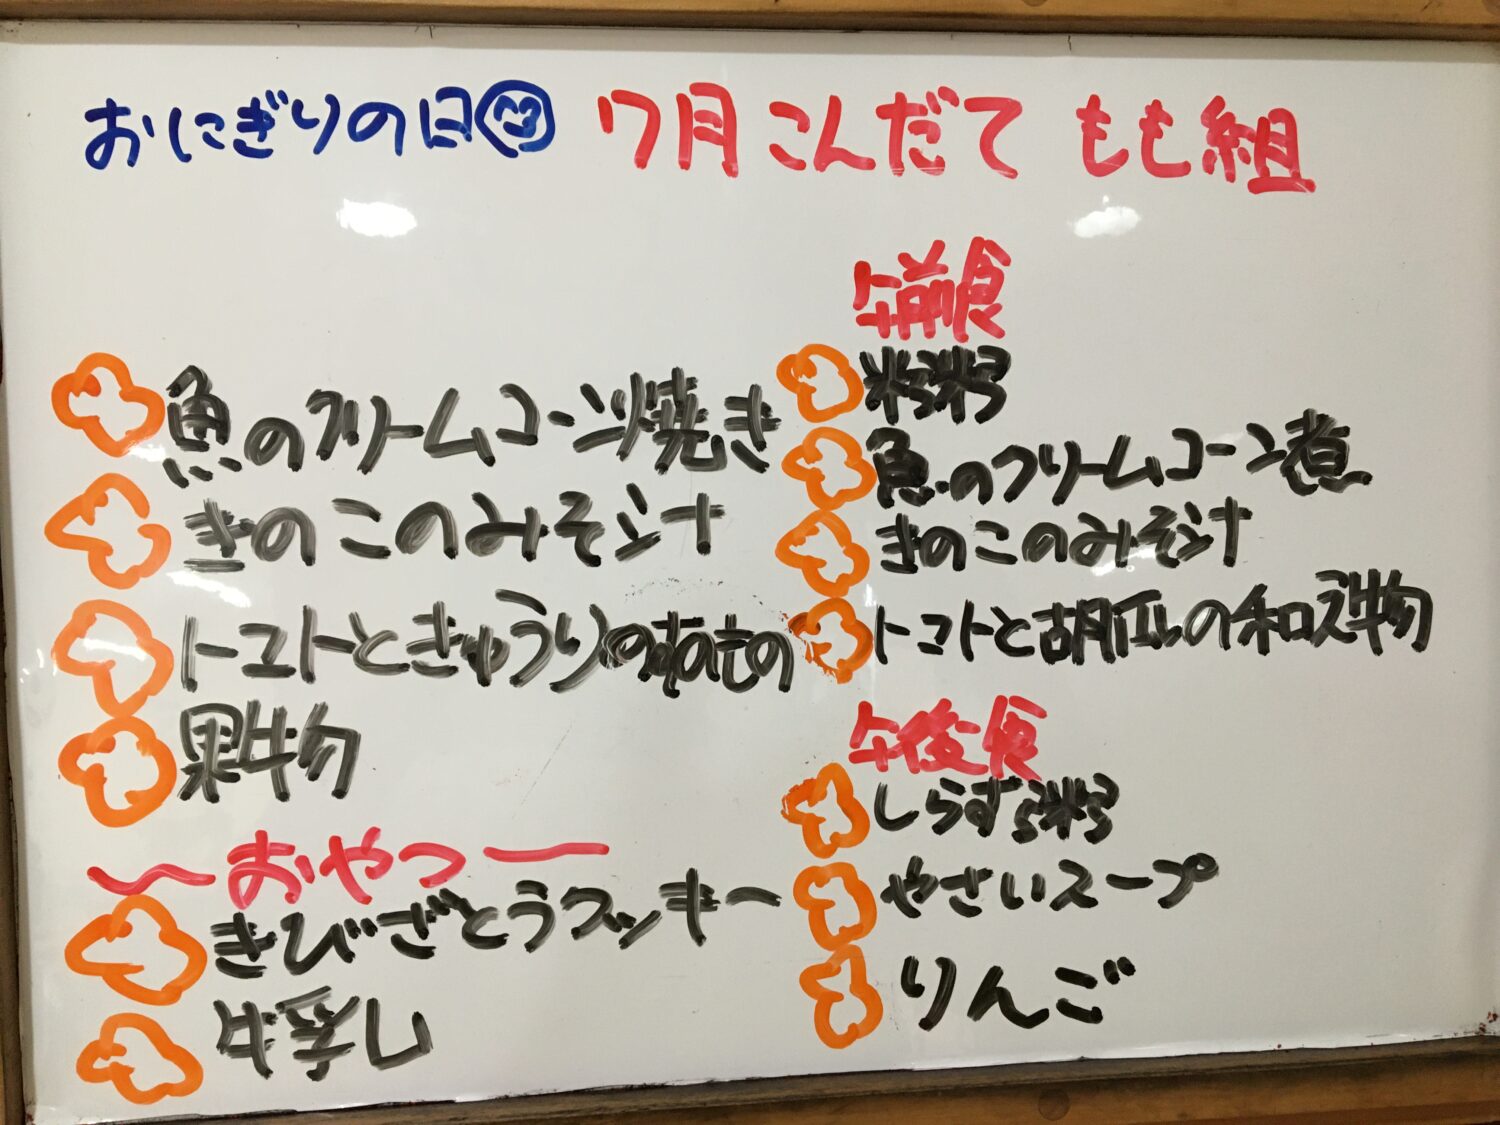 おにぎりの日 7月こんだて もも組
魚のクリームコーン焼き
きのこのみそ汁
トマトときゅうりのあえもの
果物
おやつ
きびざとうクッキー
牛乳
午前食
粥
魚のクリームコーン煮
きのこのみそ汁
トマトと胡瓜の和え物
午後食
しらす粥
やさいスープ
りんご